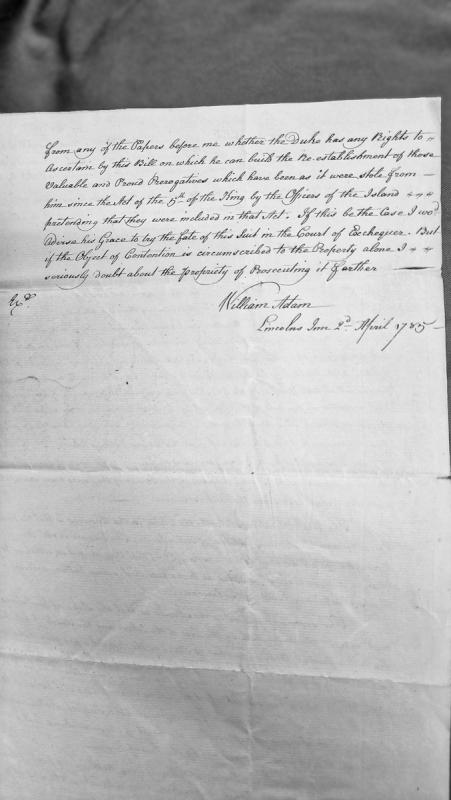 from any of the Papers before me whether the Duke has any Rights to "
Ascertain by this Bill on which he can build the Re establishment of those
Valuable and Proud Prerogatives which have been as it were stole from —
him since the Act of the 5th of the King by the Officers of the Island
pretending that they were included in that Act. If this be the Case I wod
advise his Grace to try the fate of this Suit in the Court of Exchequer. But
if the Object of Contention is circumscribed to the Property alone I
seriously doubt about the Propriety of Prosecuting it farther —
Exd
William Adam
Lincolns Inn 2d. April 1785 —